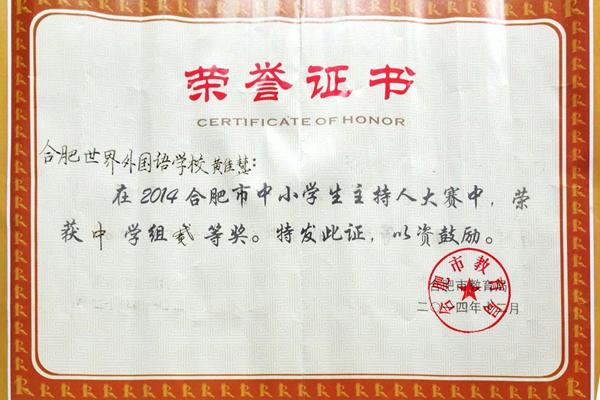 荣誉证书
CERTIFICATE OF HONOR
合肥世界外国语学校黄佳慧：
在2014合肥市中小学生主持人大赛中，荣
获中学组贰等奖。特发此证，以资鼓励。
合肥市教育局
合肥市教育局
二〇一四年十二月